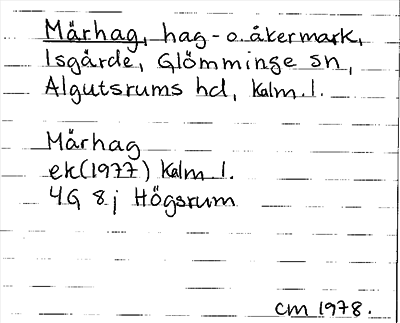 Mårhag, hag- o. åkermark,
Isgärde, Glömminge sn,
Algutsrums hd, Kalm. l.
Mårhag
ek (1977) Kalm l.
4G 8j Högsrum
CM 1978.